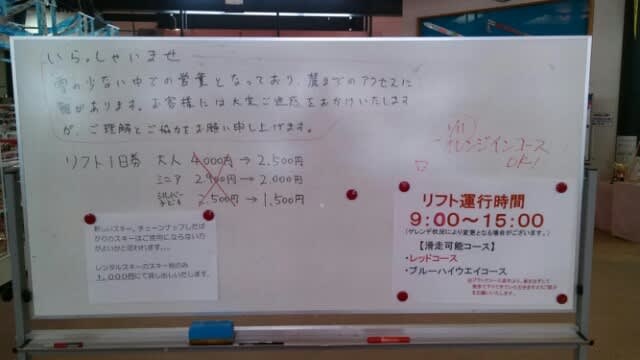 いらっしゃいませ
雪の少ない中での営業となっており、麓までのアクセスに
難があります。お客様には大変ご迷惑をおかけいたします
が、ご理解とご協力をお願い申し上げます。
リフト1日券 大人 4,000円→2,500円
ミニア 2,900円→2,000円
シルバー 2,500円→1,500円
1/11
オレンジラインコース
OK!
新しいスキー、チューンナップしたば
かりのスキーはご使用にならない方
がよいかと思われます...
レンタルスキーのスキー板のみ
1,000円にて貸し出しいたします。
リフト運行時間
9:00~15:00
(ゲレンデ状況により変更となる場合がございます。)
【滑走可能コース】
・レッドコース
・ブルーハイウエイコース